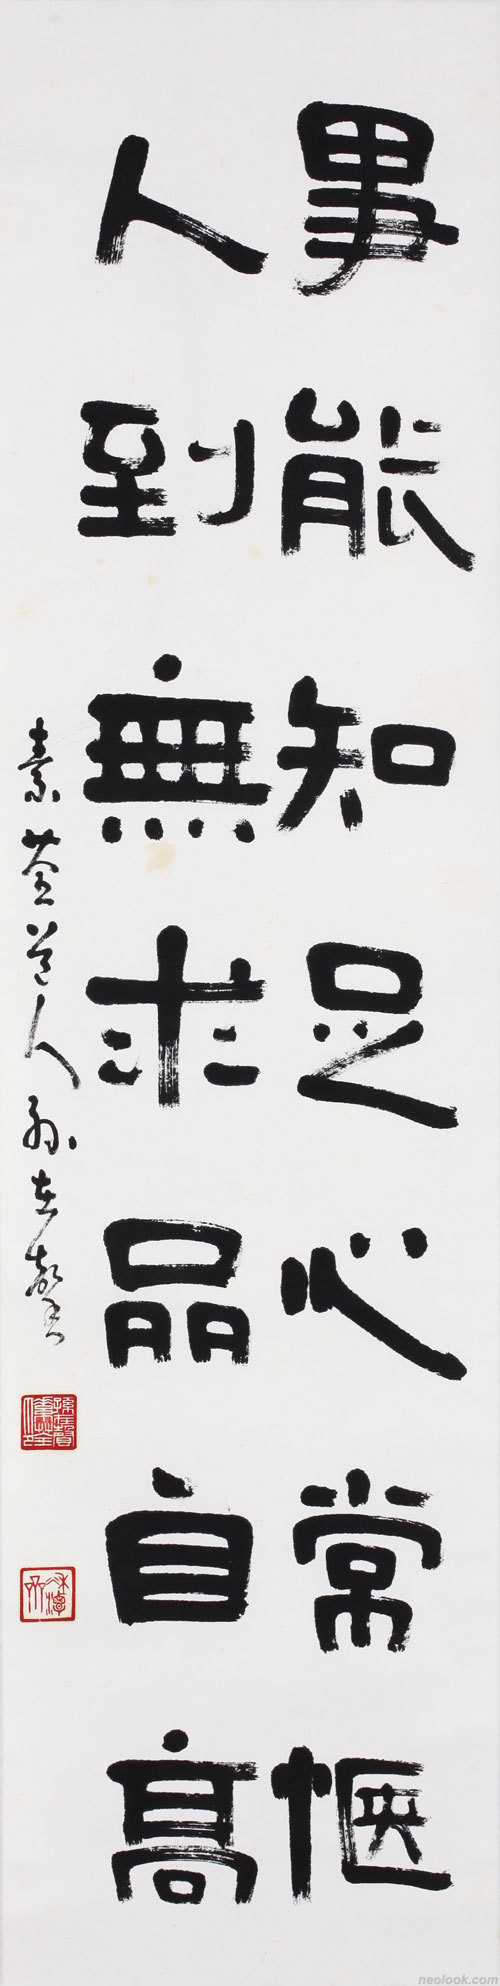 事能知足心常愜
人到無求品自高
素荃道人孫在馨
neolook.com